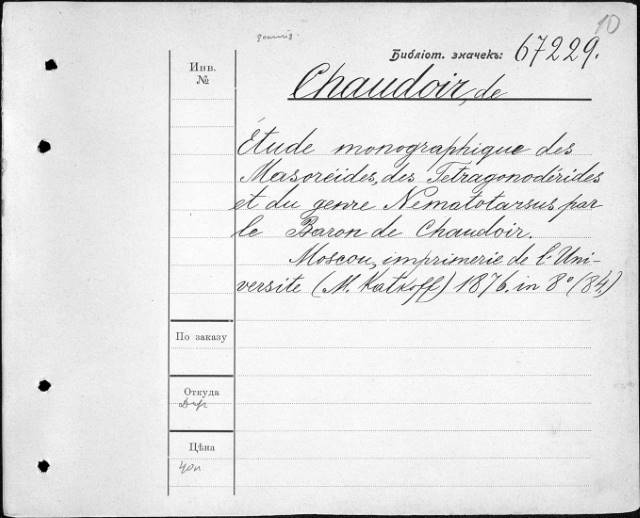 10
Библіот. значекъ: 67229.
Инв.
№
Chaudoir, de
Étude monographique des
Masoréides, des Tetragonodérides
et du genre Nematotarsus par
le Baron de Chaudoir.
Moscou, imprimerie de l'Uni-
versite (M. Katkoff) 1876. in 8° (84)
По заказу
Откуда
Цѣна